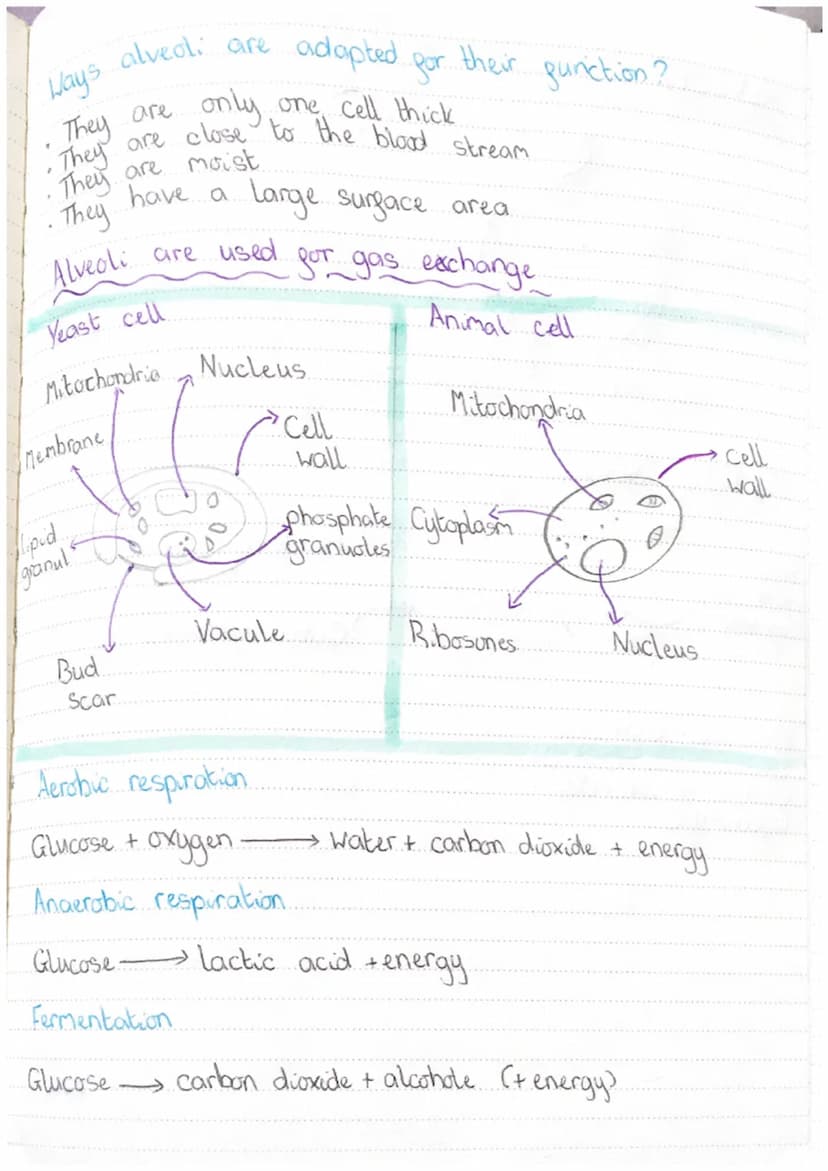 Ways alveoli are adapted for their function?
· They are only one cell thick
· They are close to the blood stream
· They are moist
· They have a large surface area
Alveoli are used for gas exchange
Yeast cell
Mitochondria
Nucleus
Membrane
Cell
wall
Lipid
granul
phosphate
granuoles
Vacule
Bud
Scar
Animal cell
Mitochondria
cell
wall
Cytoplasm
Ribosones
Nucleus
Aerobic respiration
Glucose + oxygen ⟶ water + carbon dioxide + energy
Anaerobic respiration
Glucose ⟶ lactic acid + energy
Fermentation
Glucose ⟶ carbon dioxide + alcohole (+ energy)